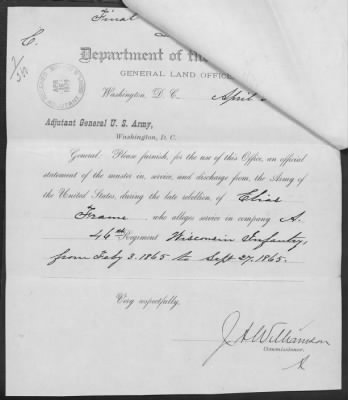 Final
C.
Department of the
GENERAL LAND OFFICE
Washington, D. C. April
Adjutant General U. S. Army,
Washington, D. C.
General: Please furnish, for the use of this Office, an official
statement of the muster in, service, and discharge from, the Army of
the United States, during the late rebellion, of Elias
Frame who alleges service in company A.
46th Regiment Wisconsin Infantry,
from Feby 3. 1865 to Sept 27. 1865.
Very respectfully,
J A Williamson
Commissioner.